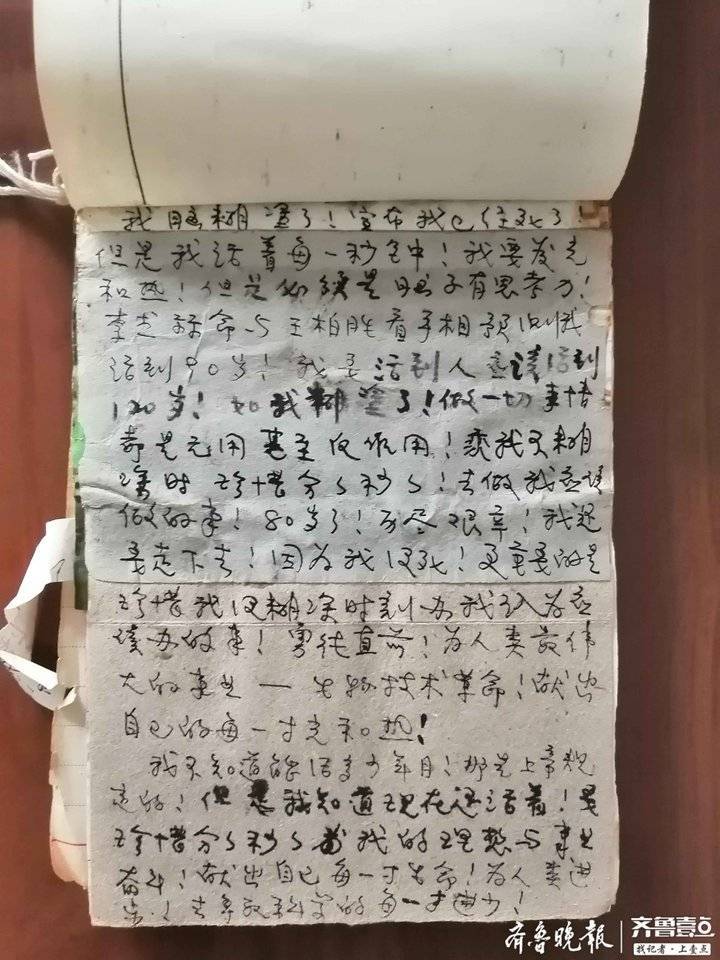 我脑糊涂了！宣布我已经死了！
但是我活着每一秒钟中！我要发光
和热！但是必须是脑子有思考力！
李 算命与王柏胜看手相预测我
活到90岁！我要活到人应该活到
120岁！如我糊塗了！做一切事情
都是无用甚至反作用！乘我不糊
涂时珍惜分分秒秒！去做我应该
做的事！80岁了！历尽艰辛！我还
要走下去！因为我没死！更重要的是
珍惜我没糊涂时刻办我认为应
该办的事！勇往直前！为人类最伟
大的事业—生物技术革命！献出
自己的每一寸光和热！
我不知道能活多少年月！那是上帝规
定的！但是我知道现在还活着！要
珍惜分分秒秒为我的理想与事业
奋斗！献出自己每一寸生命！为人类进
步！去争取科学的每一寸进步！
齐鲁晚报
齐鲁壹点
找记者·上壹点